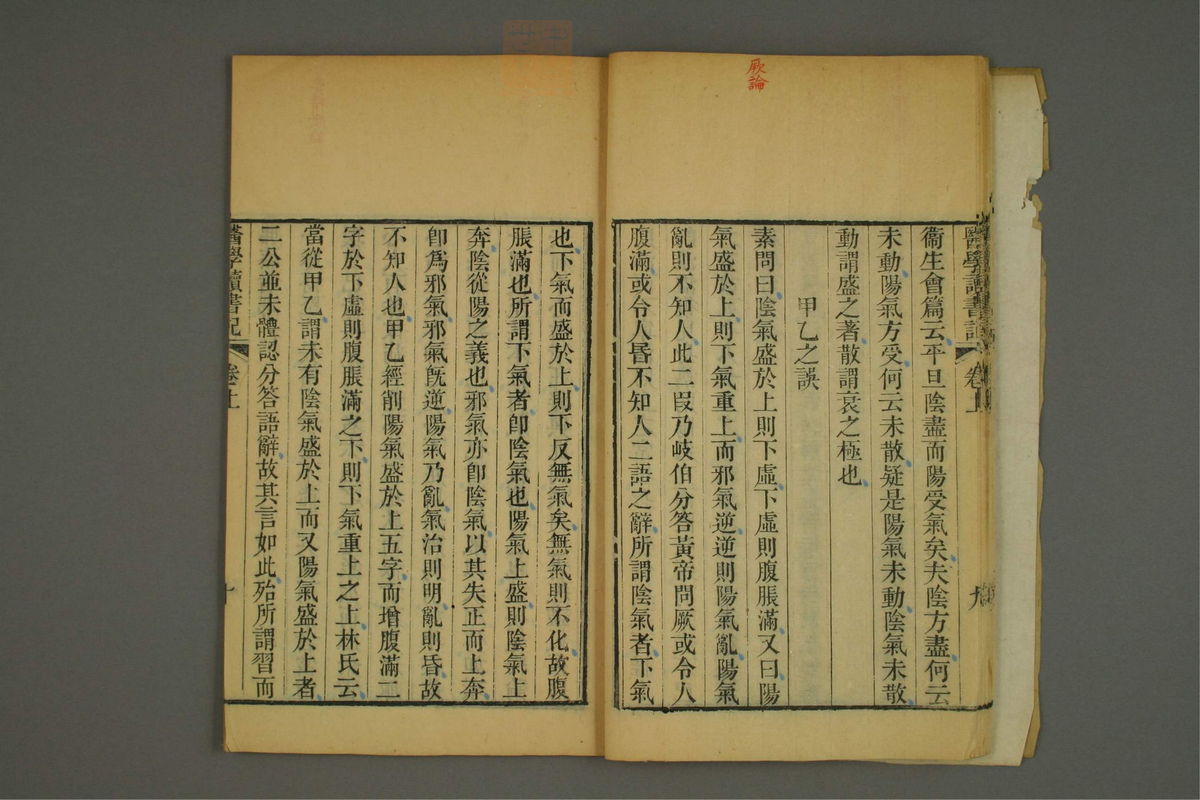 厥論
醫學讀書記 卷上 九
衞生會篇云平旦陰盡而陽受氣矣夫陰方盡何云
未動陽氣方受何云未散疑是陽氣未動陰氣未散
動謂盛之著散謂衰之極也
甲乙之誤
素問曰陰氣盛於上則下虛下虛則腹脹滿又曰陽
氣盛於上則下氣重上而邪氣逆逆則陽氣亂陽氣
亂則不知人此二段乃岐伯分答黃帝問厥或令人
腹滿或令人昬不知人二語之辭所謂陰氣者下氣
也下氣而盛於上則下反無氣矣無氣則不化故腹
脹滿也所謂下氣者卽陰氣也陽氣上盛則陰氣上
奔陰從陽之義也邪氣亦卽陰氣以其失正而上奔
卽爲邪氣邪氣旣逆陽氣乃亂氣治則明亂則昏故
不知人也甲乙經削陽氣盛於上五字而增腹滿二
字於下虛則腹脹滿之下則下氣重上之上林氏云
當從甲乙謂未有陰氣盛於上而又陽氣盛於上者
二公並未體認分答語辭故其言如此殆所謂習而
醫學讀書記 卷上 十